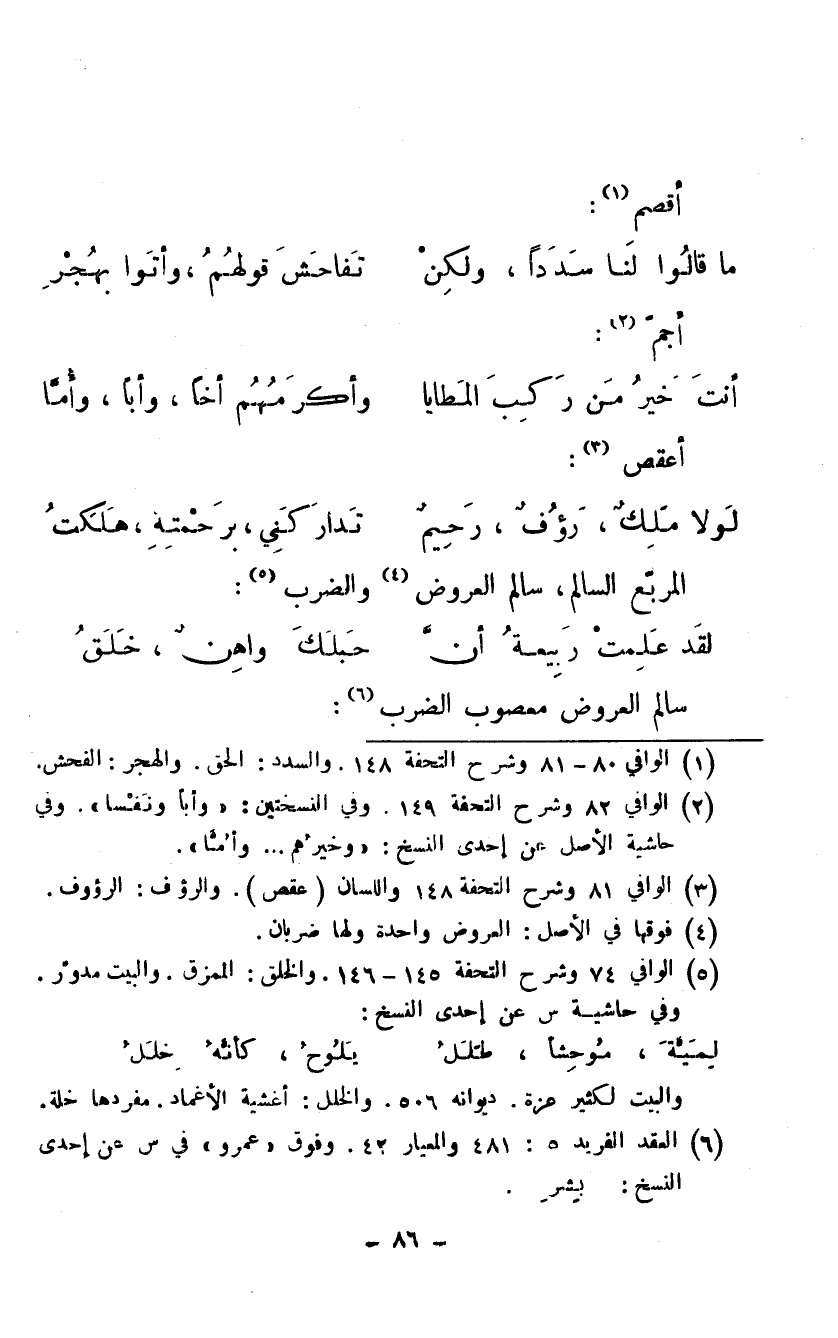 أقصم (١) :
ما قالُوا لَنا سَدَداً ، ولكِنْ تَفاحَشَ قولهُمُ ، وأتَوا بِهُجْرِ
أجمّ (٢) :
أنتَ خَيرُ مَن رَكِبَ المَطايا وأكرَمُهُم أخاً ، وأباً ، وأُمَّا
أعقص (٣) :
لَولا مَلِكٌ ، رَؤُفٌ ، رَحِيمٌ تَدارَكَنِي ، برَحْمتِهِ ، هَلَكتُ
المربّع السالم ، سالم العروض (٤) والضرب (٥) :
لقَد عَلِمتْ رَبِيعةُ أنَّ حَبلَكَ واهِنٌ ، خَلَقُ
سالم العروض معصوب الضرب (٦) :
(١) الوافي ٨٠ – ٨١ وشرح التحفة ١٤٨ . والسدد : الحق . والهجر : الفحش .
(٢) الوافي ٨٢ وشرح التحفة ١٤٩ . وفي النسختين : « وأباً ونَفْسا » . وفي
حاشية الأصل عن إحدى النسخ : « وخيرُهم ... وأُمَّا » .
(٣) الوافي ٨١ وشرح التحفة ١٤٨ واللسان ( عقص ) . والرؤف : الرؤوف .
(٤) فوقها في الأصل : العروض واحدة ولها ضربان .
(٥) الوافي ٧٤ وشرح التحفة ١٤٥ – ١٤٦ . والخلق : الممزق . والبيت مدوّر .
وفي حاشية س عن إحدى النسخ :
لِمَيَّةَ ، مُوحِشاً ، طَلَلُ يَلُوحُ ، كأنَّهُ خِلَلُ
والبيت لكثير عزة . ديوانه ٥٠٦ . والخلل : أغشية الأغماد . مفردها خلة .
(٦) العقد الفريد ٥ : ٤٨١ والمعيار ٤٢ . وفوق « عمرو » في س عن إحدى
النسخ : بِشرِ .
– ٨٦ –